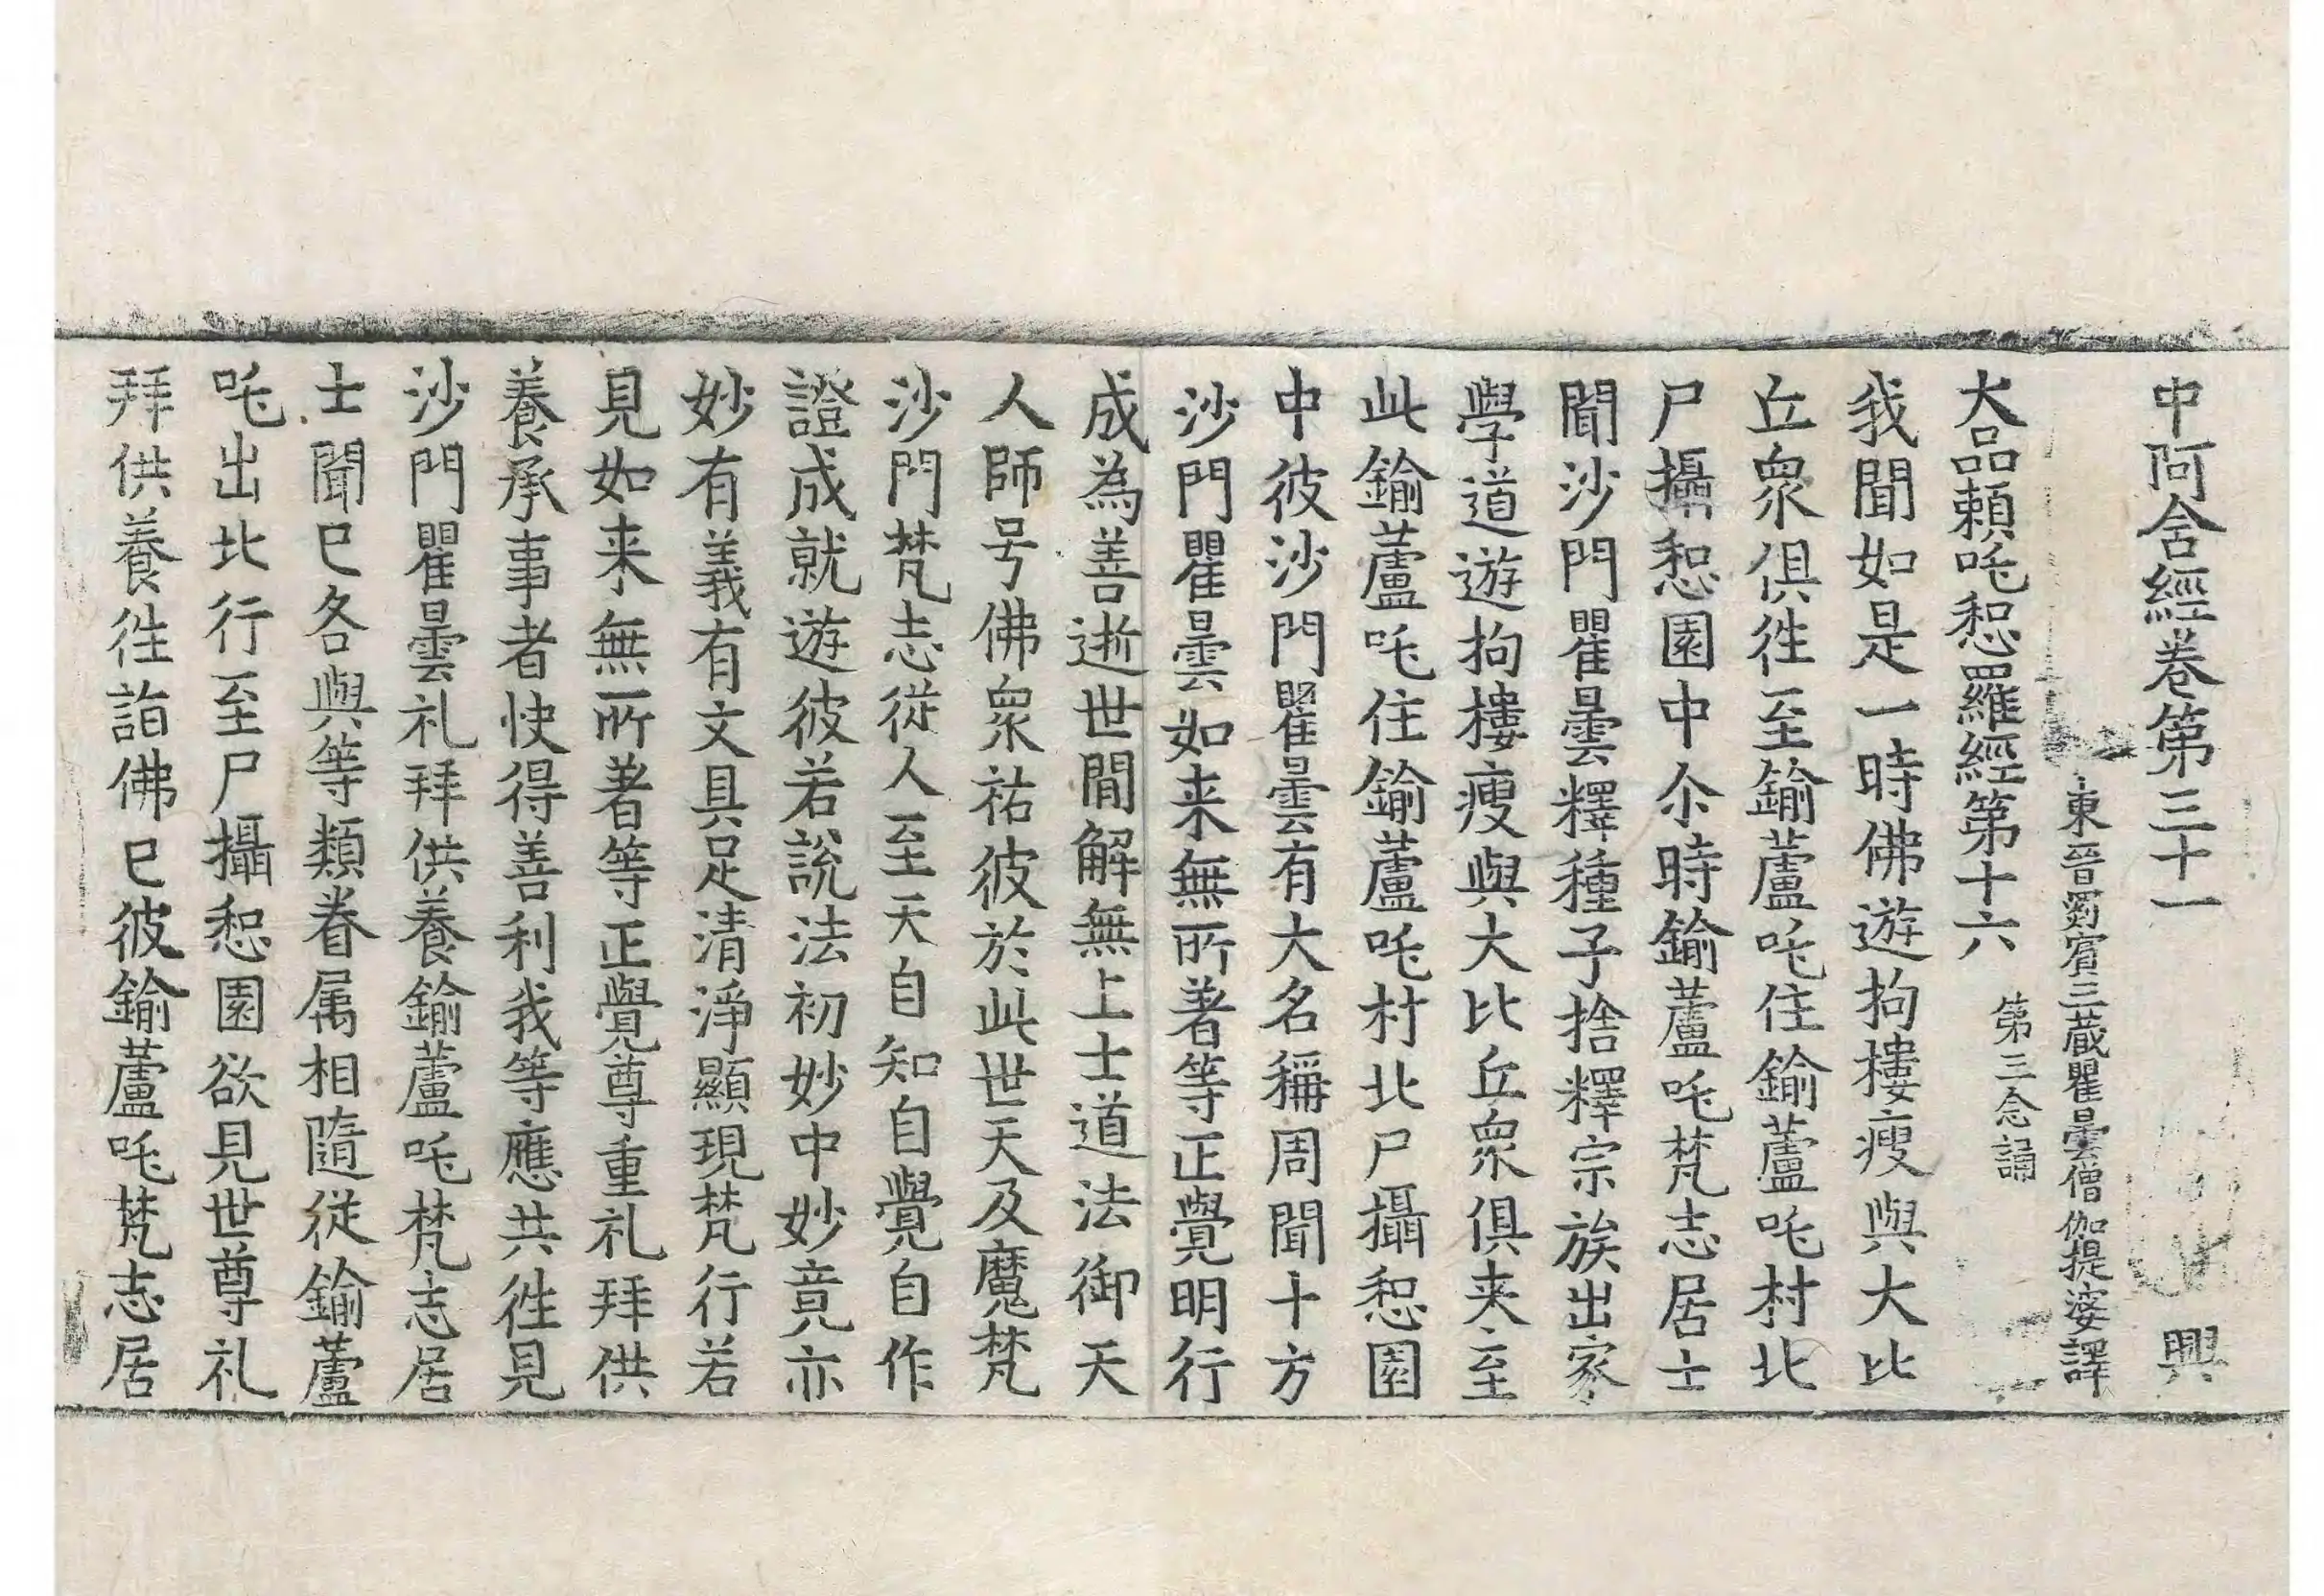 中阿含經卷第三十一　興
東晉罽賓三藏瞿曇僧伽提婆譯
大品頼吒惒羅經第十六　第三念誦
我聞如是一時佛遊拘樓瘦與大比
丘衆俱徃至鍮蘆吒住鍮蘆吒村北
尸攝惒園中尒時鍮蘆吒梵志居士
聞沙門瞿曇釋種子捨釋宗族出家
學道遊拘樓瘦與大比丘衆俱来至
此鍮蘆吒住鍮蘆吒村北尸攝惒園
中彼沙門瞿曇有大名稱周聞十方
沙門瞿曇如来無所著等正覺明行
成為善逝世閒解無上士道法御天
人師号佛衆祐彼於此世天及魔梵
沙門梵志從人至天自知自覺自作
證成就遊彼若說法初妙中妙竟亦
妙有義有文具足清淨顯現梵行若
見如来無所著等正覺尊重礼拜供
養承事者快得善利我等應共徃見
沙門瞿曇礼拜供養鍮蘆吒梵志居
士聞已各與等類眷属相隨從鍮蘆
吒出北行至尸攝惒園欲見世尊礼
拜供養徃詣佛已彼鍮蘆吒梵志居